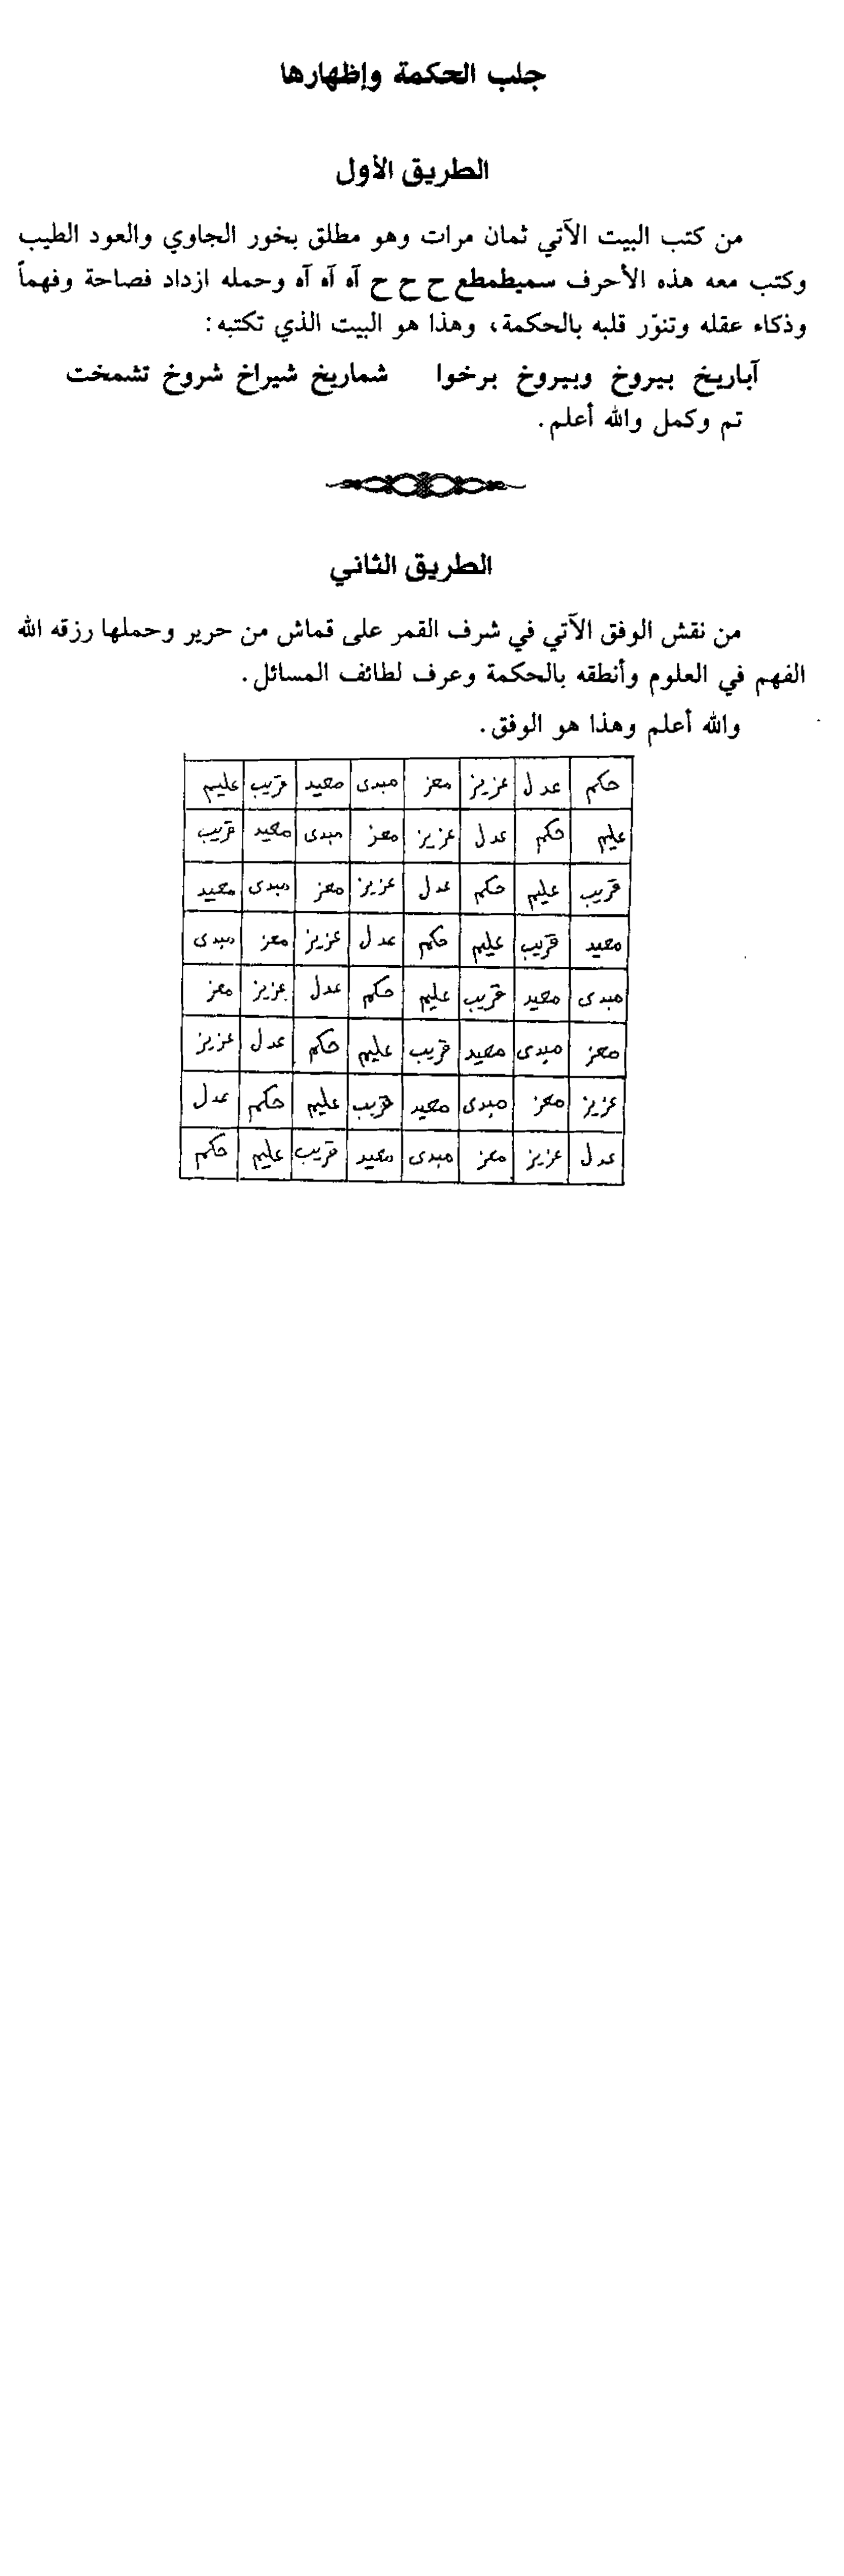 جلب الحكمة وإظهارها
الطريق الأول
من كتب البيت الآتي ثمان مرات وهو مطلق بخور الجاوي والعود الطيب
وكتب معه هذه الأحرف سميطمطع ح ح ح آه آه آه وحمله ازداد فصاحة وفهماً
وذكاء عقله وتنوّر قلبه بالحكمة، وهذا هو البيت الذي تكتبه:
آباريخ بيروخ وبيروخ برخوا شماريخ شيراخ شروخ تشمخت
تم وكمل والله أعلم.
الطريق الثاني
من نقش الوفق الآتي في شرف القمر على قماش من حرير وحملها رزقه الله
الفهم في العلوم وأنطقه بالحكمة وعرف لطائف المسائل.
والله أعلم وهذا هو الوفق.
حكم عدل عزيز معز مبدى معيد قريب عليم
عليم حكم عدل عزيز معز مبدى معيد قريب
قريب عليم حكم عدل عزيز معز مبدى معيد
معيد قريب عليم حكم عدل عزيز معز مبدى
مبدى معيد قريب عليم حكم عدل عزيز معز
معز مبدى معيد قريب عليم حكم عدل عزيز
عزيز معز مبدى معيد قريب عليم حكم عدل
عدل عزيز معز مبدى معيد قريب عليم حكم